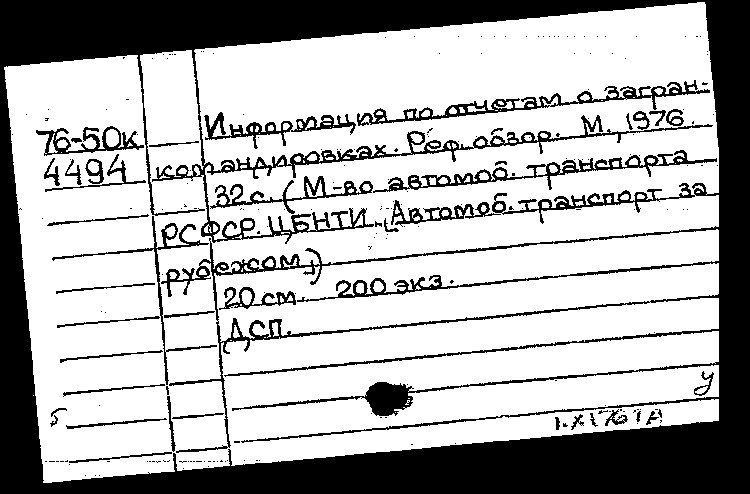 76-50к
4494
Информация по отчетам о загран-
командировках. Реф. обзор. М., 1976.
32 с. (М-во автомоб. транспорта
РСФСР. ЦБНТИ. Автомоб. транспорт за
рубежом)
20 см. 200 экз.
ДСП.
б
у